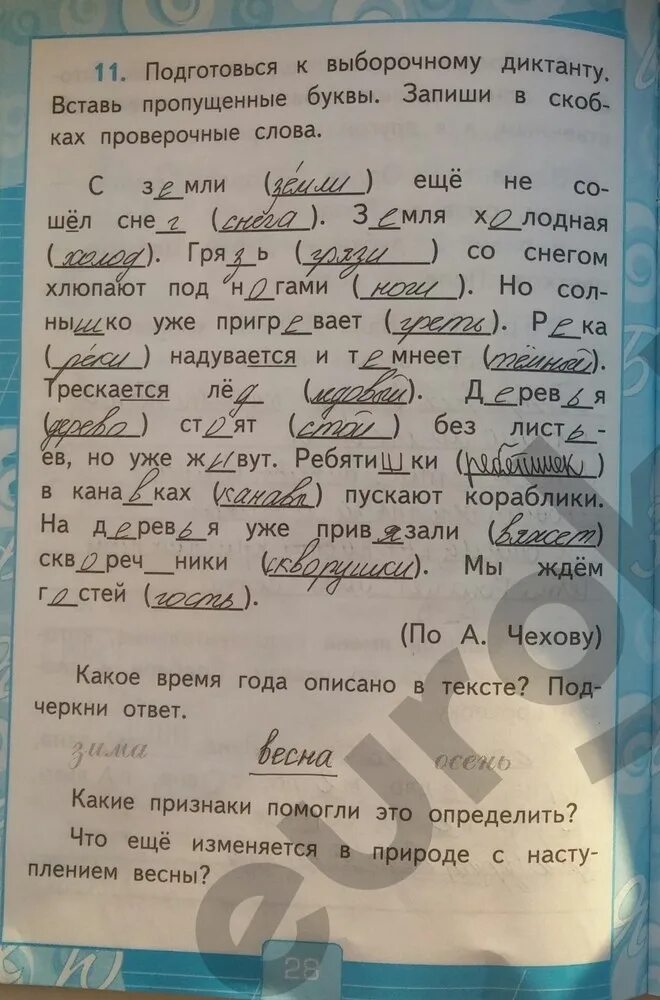 11. Подготовься к выборочному диктанту.
Вставь пропущенные буквы. Запиши в скоб-
ках проверочные слова.
С земли (зе́мли) ещё не со-
шёл снег (снега). Земля холодная
(холод). Грязь (грязи) со снегом
хлюпают под ногами (ноги). Но сол-
нышко уже пригревает (греть). Река
(ре́ки) надувается и темнеет (тёмный).
Трескается лёд (ледовый). Деревья
(дерево) стоят (стоя) без листь-
ев, но уже живут. Ребятишки (ребятишек)
в канавках (канавы) пускают кораблики.
На деревья уже привязали (вяжет)
сквореч__ники (скворушки). Мы ждём
гостей (гость).
(По А. Чехову)
Какое время года описано в тексте? Под-
черкни ответ.
зима весна осень
Какие признаки помогли это определить?
Что ещё изменяется в природе с насту-
плением весны?
28